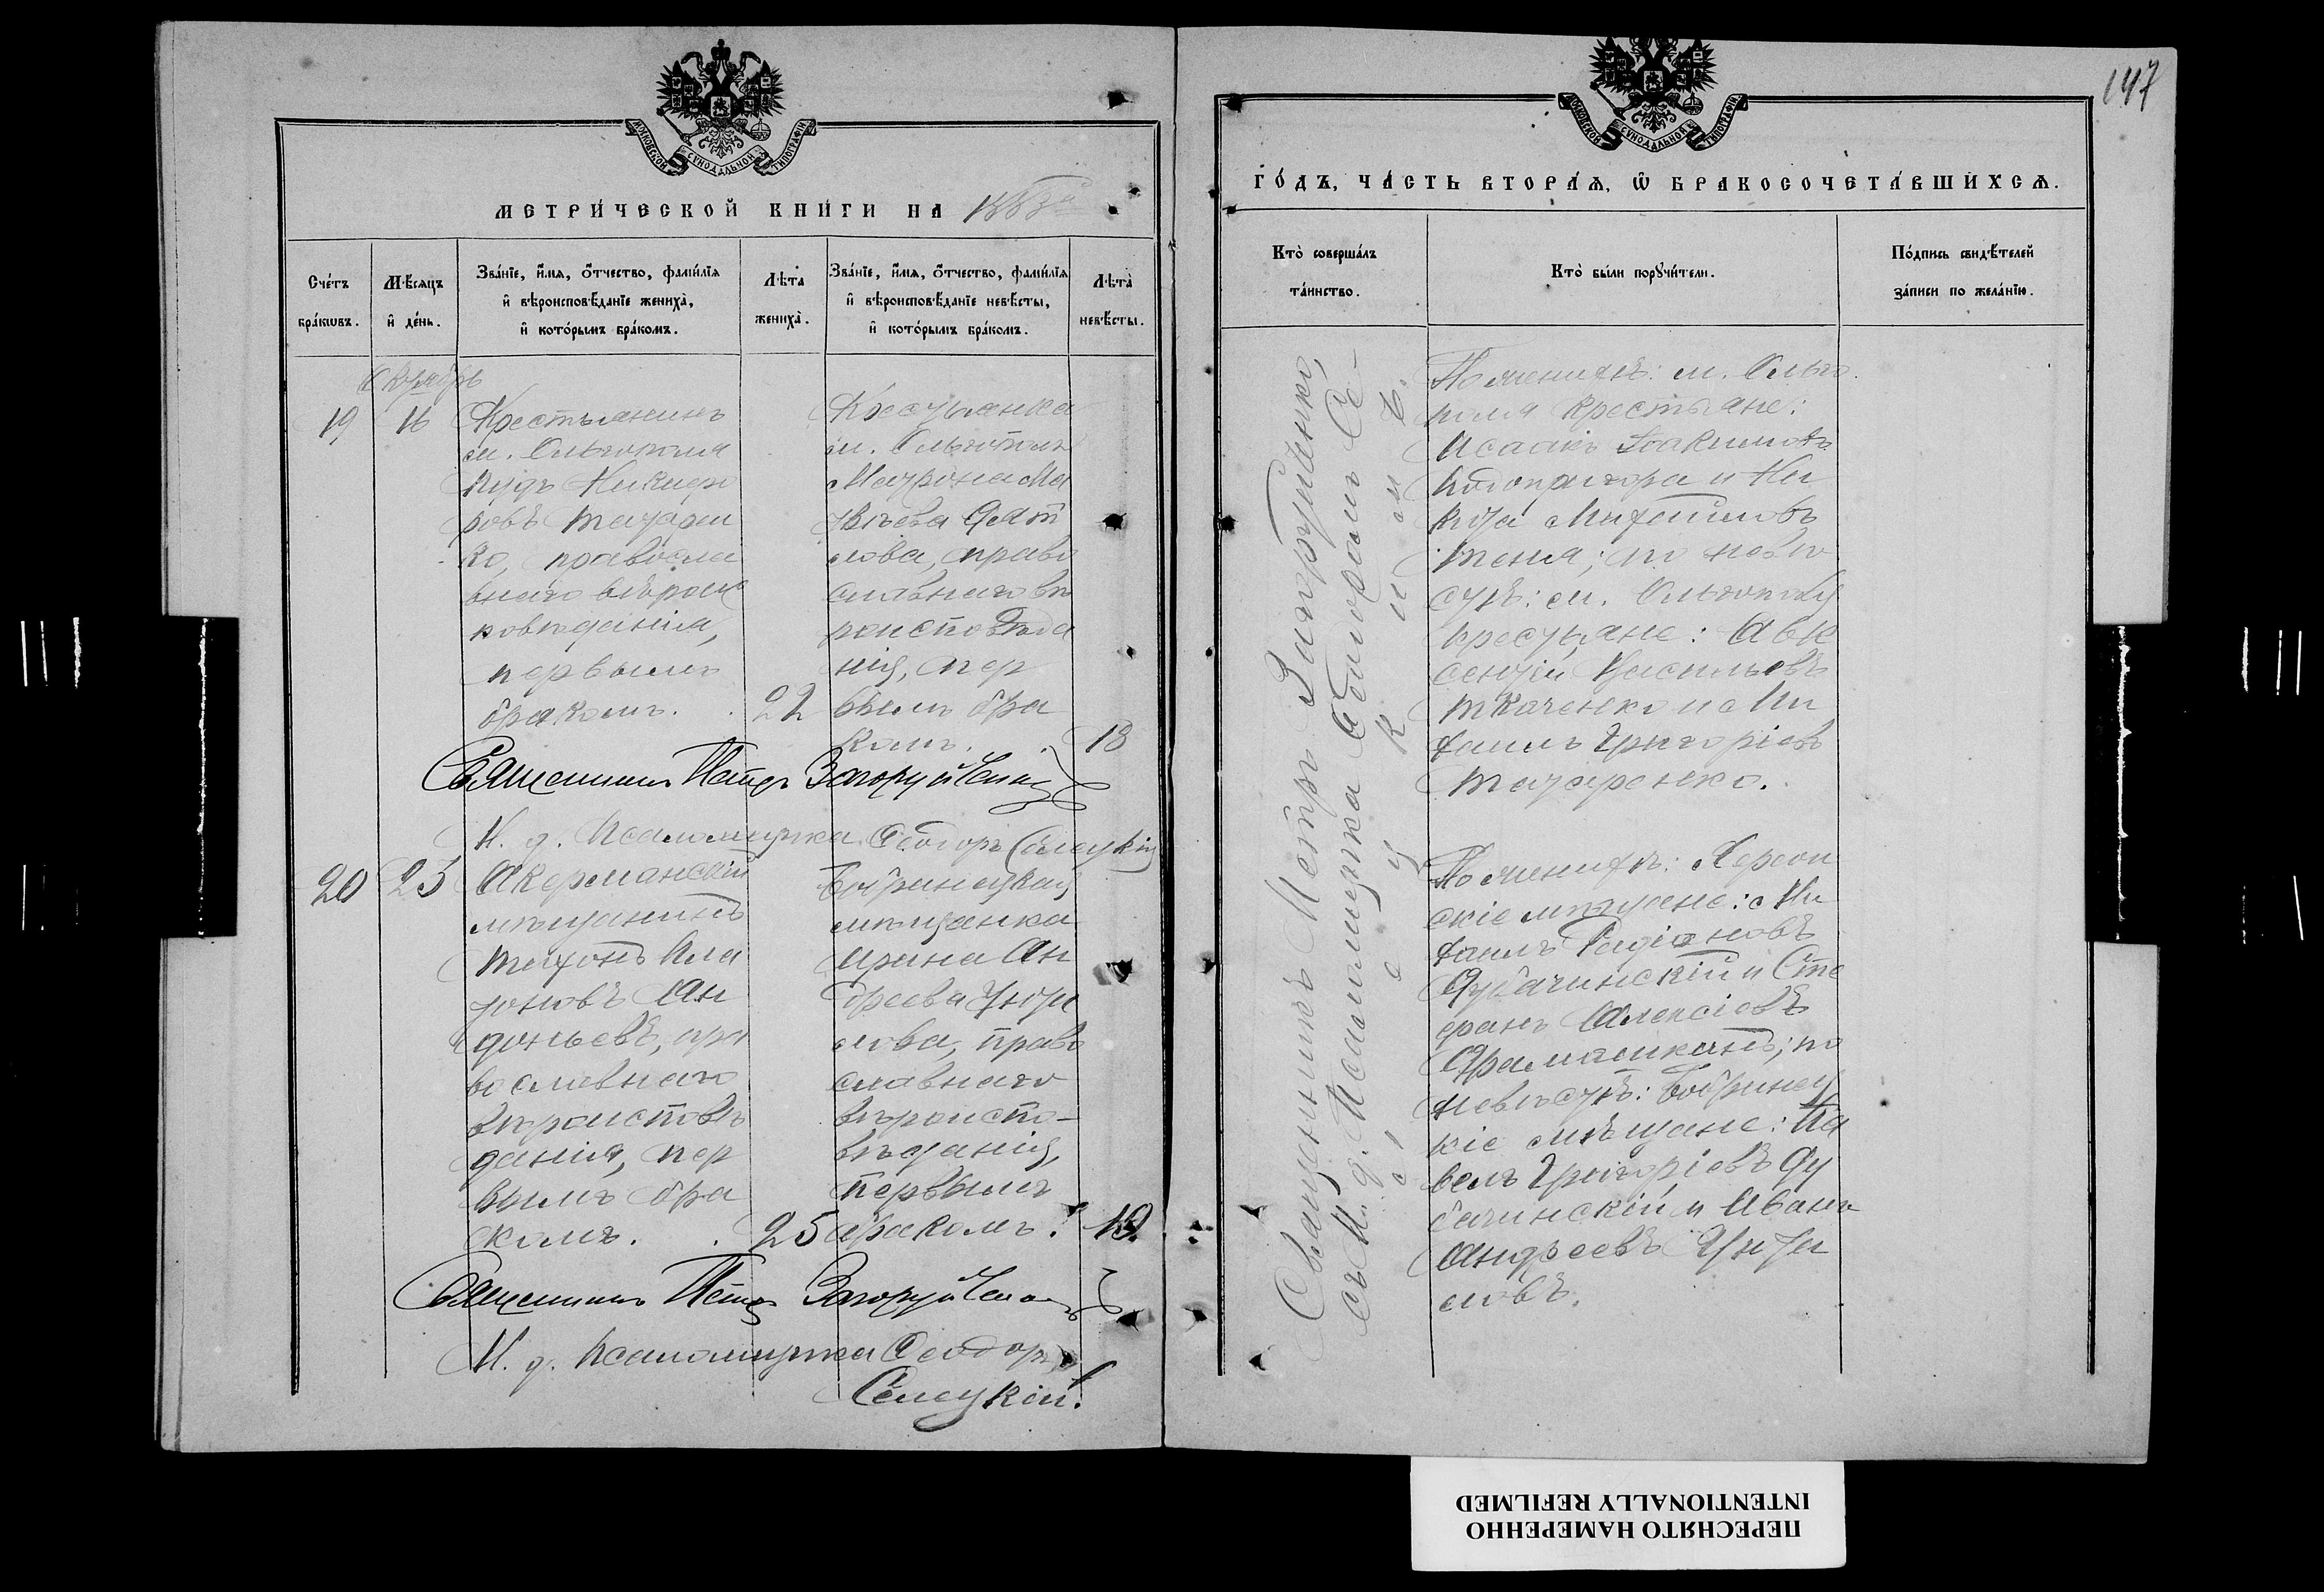 147
МОСКОВСКОЙ СУНОДАЛЬНОЙ ТИПОГРАФІИ
МЕТРИ́ЧЕСКОЙ КНИ́ГИ НА 1883
Сче́тъ бра́кωвъ.
Мѣ́сяцъ и҆ де́нь.
Зва́нїе, и҆́мя, о҆́тчество, фами́лїя и҆ вѣроисповѣ́данїе жениха̀, и҆ кото́рымъ бра́комъ.
Лѣ́та жениха̀.
Зва́нїе, и҆́мя, о҆́тчество, фами́лїя и҆ вѣроисповѣ́данїе невѣ́сты, и҆ кото́рымъ бра́комъ.
Лѣ́та невѣ́сты.
Октябрь
19
16
Крестьянинъ
м. Ольгополя
Никифо
ровъ Татарен
ко, правосла
внаго вѣроис
повѣданія,
первымъ
бракомъ.
22
Крестьянка
м. Ольгополя
Матрона Ма
твѣева
лова, право
славнаго вѣ
роисповѣда
нія, пер
вымъ бра
комъ.
18
Священникъ Петръ Загоруйченко
И. д. Псаломщика Ѳеодоръ Селецкій
20
23
Акерманскій
мѣщанинъ
Тихонъ Пла
тоновъ Ан
доньевъ, пра
вославнаго
вѣроисповѣ
данія, пер
вымъ бра
комъ.
25
Бобринецкая
мѣщанка
Ирина Ан
дреева
лова, право
славнаго
вѣроиспо-
вѣданія,
первымъ
бракомъ.
19.
Священникъ Петръ Загоруйченко
И. д. Псаломщика Ѳеодоръ
Селецкій.
МОСКОВСКОЙ СУНОДАЛЬНОЙ ТИПОГРАФІИ
ГО́ДЪ, ЧА́СТЬ ВТОРА́Я, Ѡ҆ БРАКОСОЧЕТА́ВШИХСЯ.
Кто̀ соверша́лъ та́инство.
Кто̀ бы́ли порꙋчи́тели.
По́дпись свидѣ́телей за́писи по жела́нїю.
Священникъ Петръ Загоруйченко,
съ И. д. Псаломщика Ѳеодоромъ Се-
лецкимъ.
По женихѣ: м. Ольго
поля крестьяне:
Исаакъ Іоакимовъ
Подопригора и Ни
кита Михаиловъ
по невѣ
стѣ: м. Ольгополя
крестьяне: Авк
сентій Васильевъ
Ткаченко и Ми
хаилъ Григоріевъ
Татаренко.
По женихѣ: Херсон
скіе мѣщане: Ми
хаилъ Радіоновъ
Дубачинскій и Сте
фанъ Алексіевъ
по
невѣстѣ: Бобринец
кіе мѣщане: Па
велъ Григоріевъ Ду
бачинскій и Иванъ
Андреевъ
ловъ.
ПЕРЕСНЯТО НАМЕРЕННО
INTENTIONALLY REFILMED